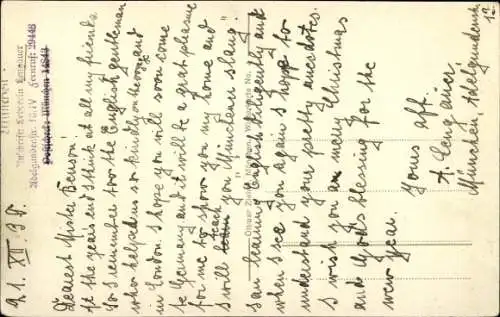 Zitherlehrerin
Adelgundenstr. 15/IV Fernruf: 29448
Postscheck: München 14849
21. XII. 35.
Dearest Mister Benson!
At the years end I think at all my friends
So I remember too the English gentleman
who helped us so kindly on the voyage and
in London. I hope you will soon come
to Germany and it will be a great pleasure
for me to show you my home and
I will teach you Münchean slang.
I am learning English diligently and
when I see you again I hope to
understand your pretty anecdotes.
I wish you a merry Christmas
and Gods blessing for the
new year.
Yours aff.
A. Lengauer,
München, Adelgundenstr.
Ottmar Zieher, München, Wohlfahrtskarte No.